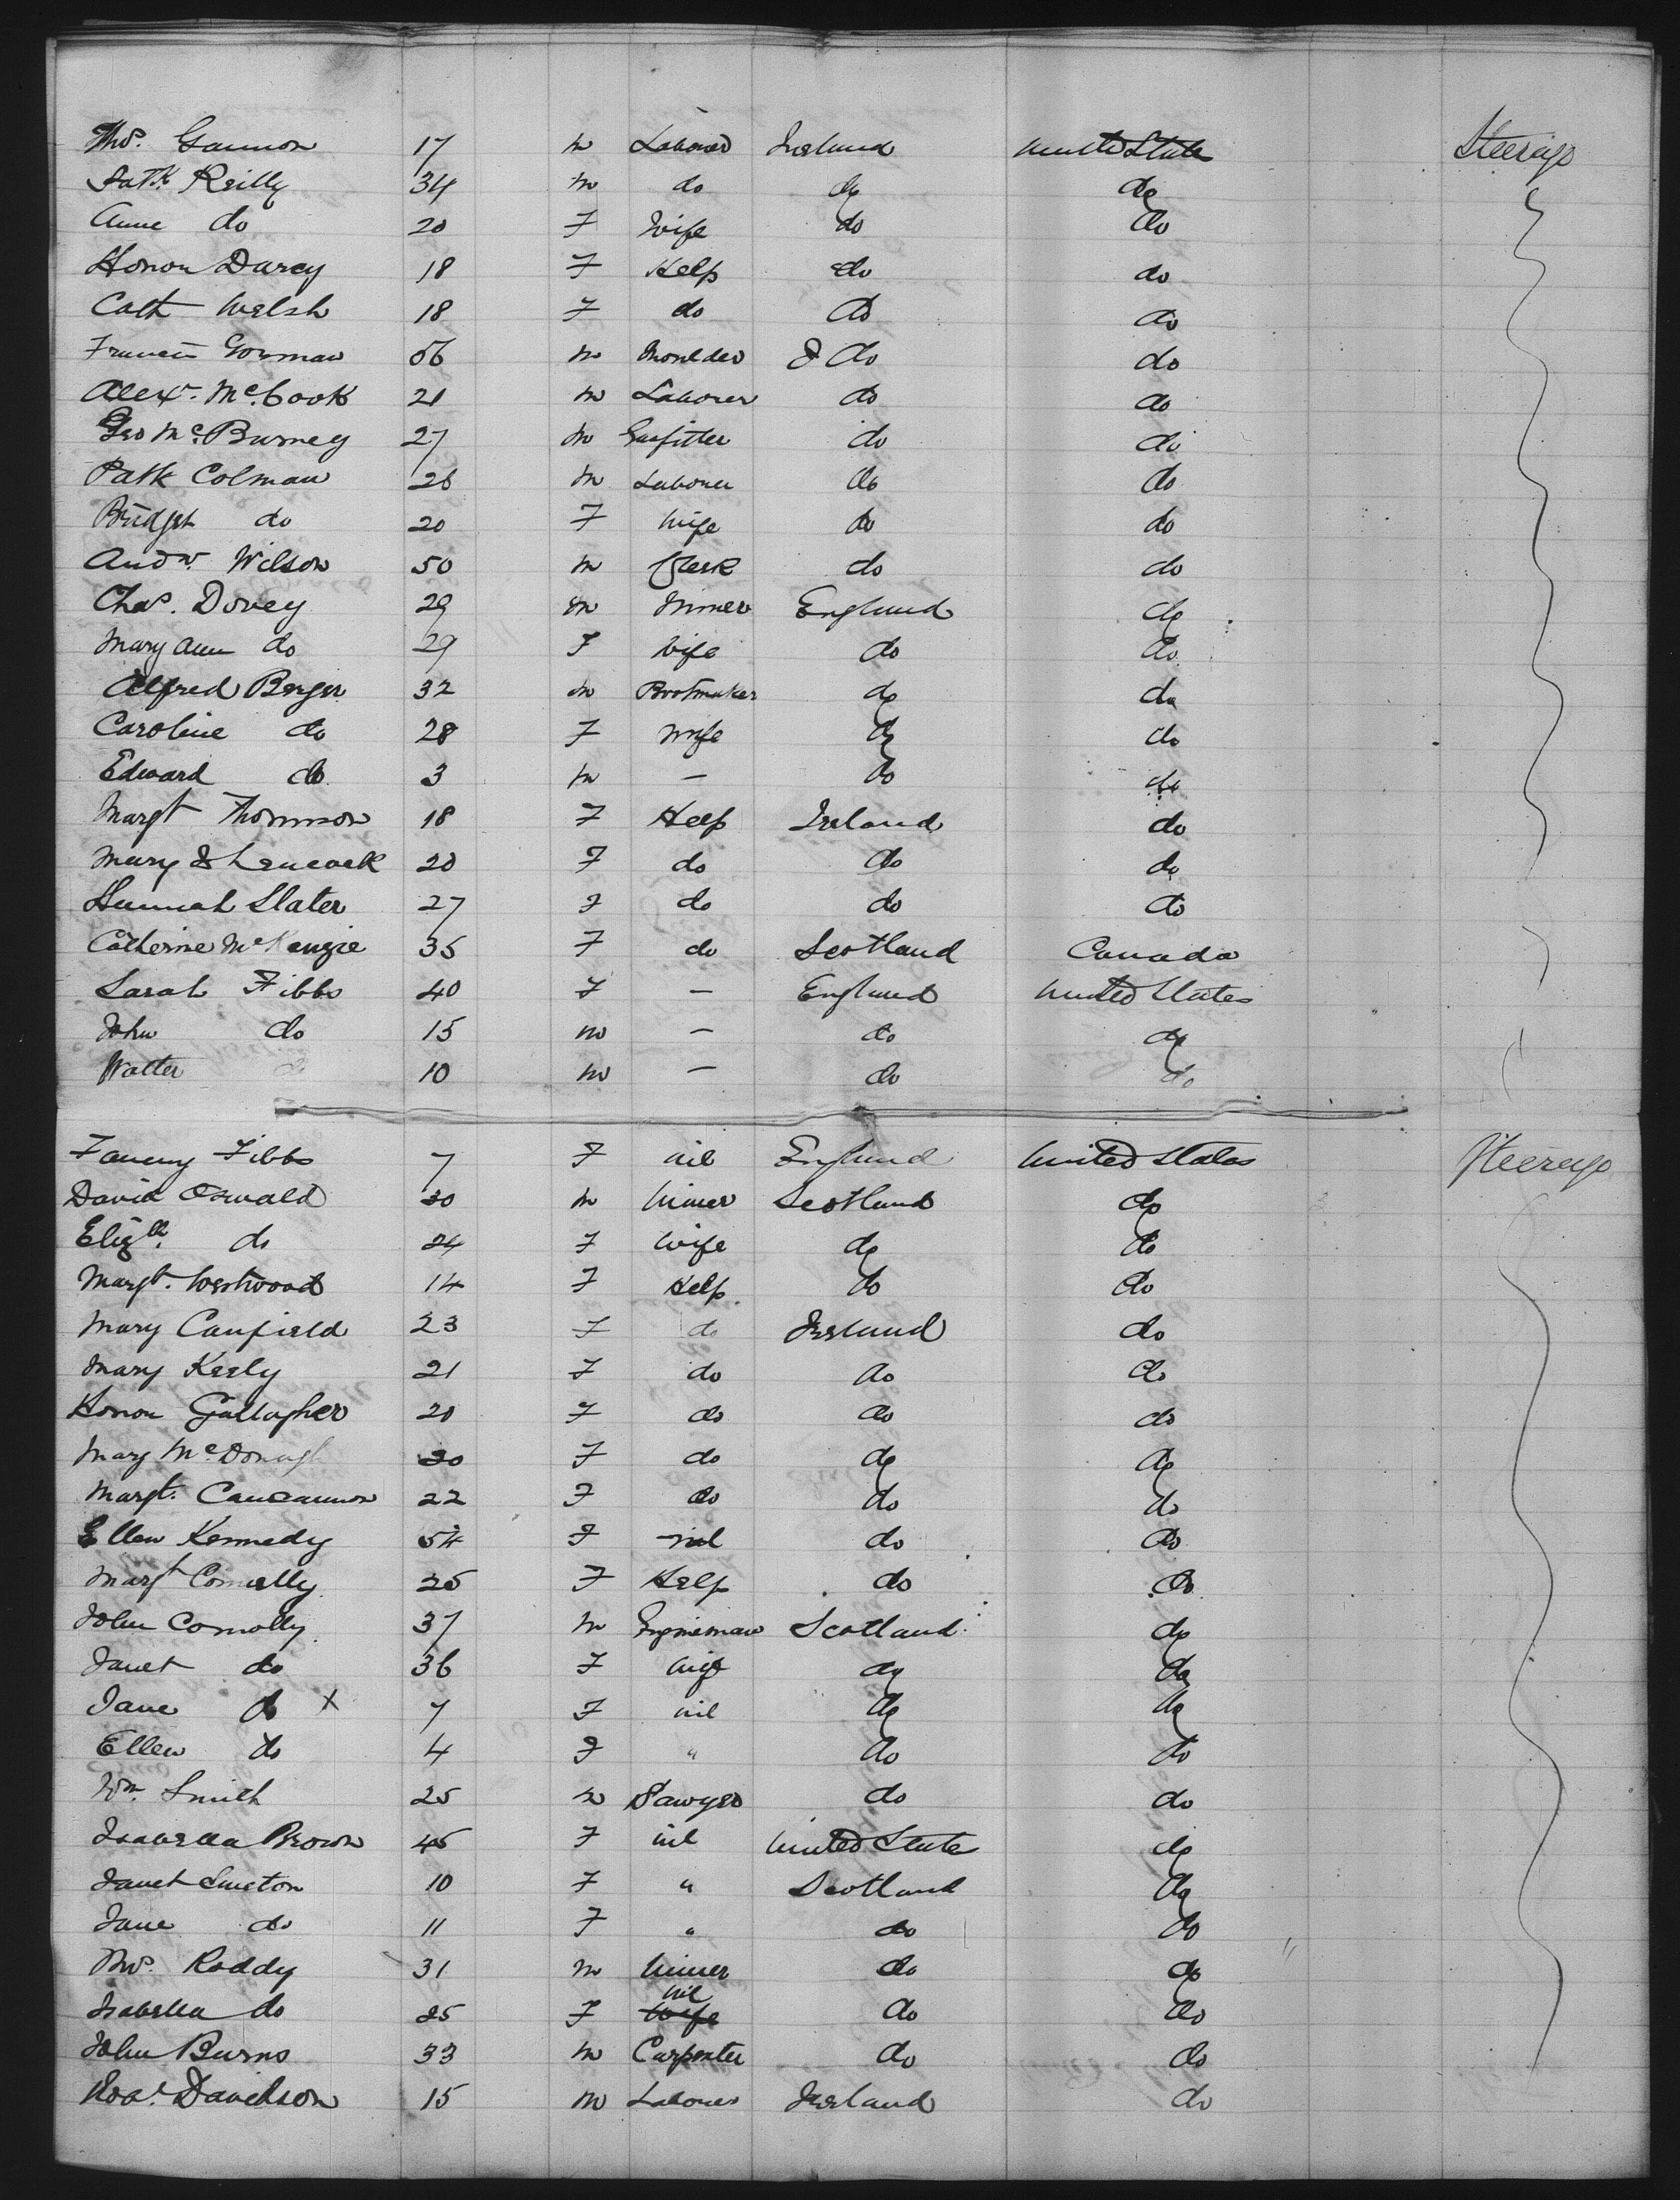 Thos. Gannon 17 m Laborer Ireland United States Steerage
Patk Reilly 34 m do do do
Anne do 20 F Wife do do
Honor Darcy 18 F Help do do
Cath Welsh 18 F do do do
Francis Gorman 56 m Moulder do do
Alexr. McCook 21 m Laborer do do
Geo McBurney 27 m Gasfitter do do
Patk Colman 26 m Laborer do do
Bridget do 20 F Wife do do
Andw. Wilson 50 m Clerk do do
Chas. Dovey 29 m Miner England do
Mary Ann do 29 F Wife do do
Alfred Berger 32 m Bootmaker do do
Caroline do 28 F Wife do do
Edward do 3 m — do do
Margt Thomson 18 F Help Ireland do
Mary 20 F do do do
Hannah Slater 27 F do do do
Catherine McKenzie 35 F do Scotland Canada
Sarah Fibbs 40 F — England United States
John do 15 m — do do
Walter do 10 m — do do
Fanny Fibbs 7 F nil England United States Steerage
David Oswald 30 m Miner Scotland do
Elizth. do 24 F Wife do do
Margt. Westwood 14 F Help do do
Mary Canfield 23 F do Ireland do
Mary Keely 21 F do do do
Honor Gallagher 20 F do do do
Mary McDonagh 20 F do do do
Margt. Cancannon 22 F do do do
Ellen Kennedy 54 F nil do do
Margt Connelly 25 F Help do do
John Connolly 37 m Engineman Scotland do
Janet do 36 F Wife do do
Jane do X 7 F nil do do
Ellen do 4 F " do do
Wm. Smith 25 m Sawyer do do
Isabella Brown 45 F nil United State do
Janet Smeton 10 F " Scotland do
Jane do 11 F " do do
Thos. Roddy 31 m Miner do do
Isabella do 25 F Wife nil do do
John Burns 33 m Carpenter do do
Davidson 15 m Laborer Ireland do